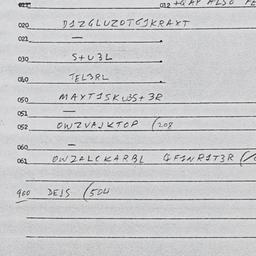 020 D1ZGLUZOTGJKRAXT
021 —
030 S+U3L
040 TEL3RL
050 MAYT1SKW3S+3R
051 —
052 OWZVAJKTOP (208
060 —
061 OWZALCKARBL GFINR1T3R
900 DEJS (504